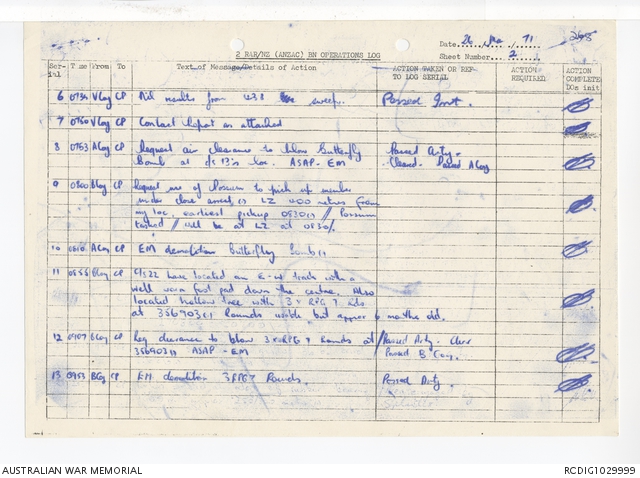 Date 26 Mar / 71
Sheet Number 2
2 RAR/NZ (ANZAC) BN OPERATIONS LOG
Ser-ial Time From To Text of Message/Details of Action ACTION TAKEN OR REF TO LOG SERIAL ACTION REQUIRED ACTION COMPLETE DOs init
6 VCoy CP results from sweep. Passed
7 0750 VCoy CP Contact Report as attached
8 0753 ACoy CP Request air clearance to blow Butterfly Passed Arty.
Bomb at loc. ASAP - EM Cleared Passed A Coy
9 0800 CP Request use of Possum to pick up member
under close arrest LZ 400 metres from
my loc. earliest pickup 0830 // Possum
tasked // will be at LZ at 0830
10 0810 ACoy CP EM demolition Butterfly bomb
11 CP have located an E-W track with a
well worn foot pad down the centre. Also
located hollow tree with 3 x RPG 7 Rds
at 356903 Rounds but approx 6 months old.
12 0907 BCoy CP Req clearance to blow 3 x RPG 7 Rounds at Passed Arty - Clear
356903 ASAP - EM Passed B Coy.
13 0953 BCoy CP EM demolition 3 RPG 7 Rounds. Passed Arty.
AUSTRALIAN WAR MEMORIAL
RCDIG1029999